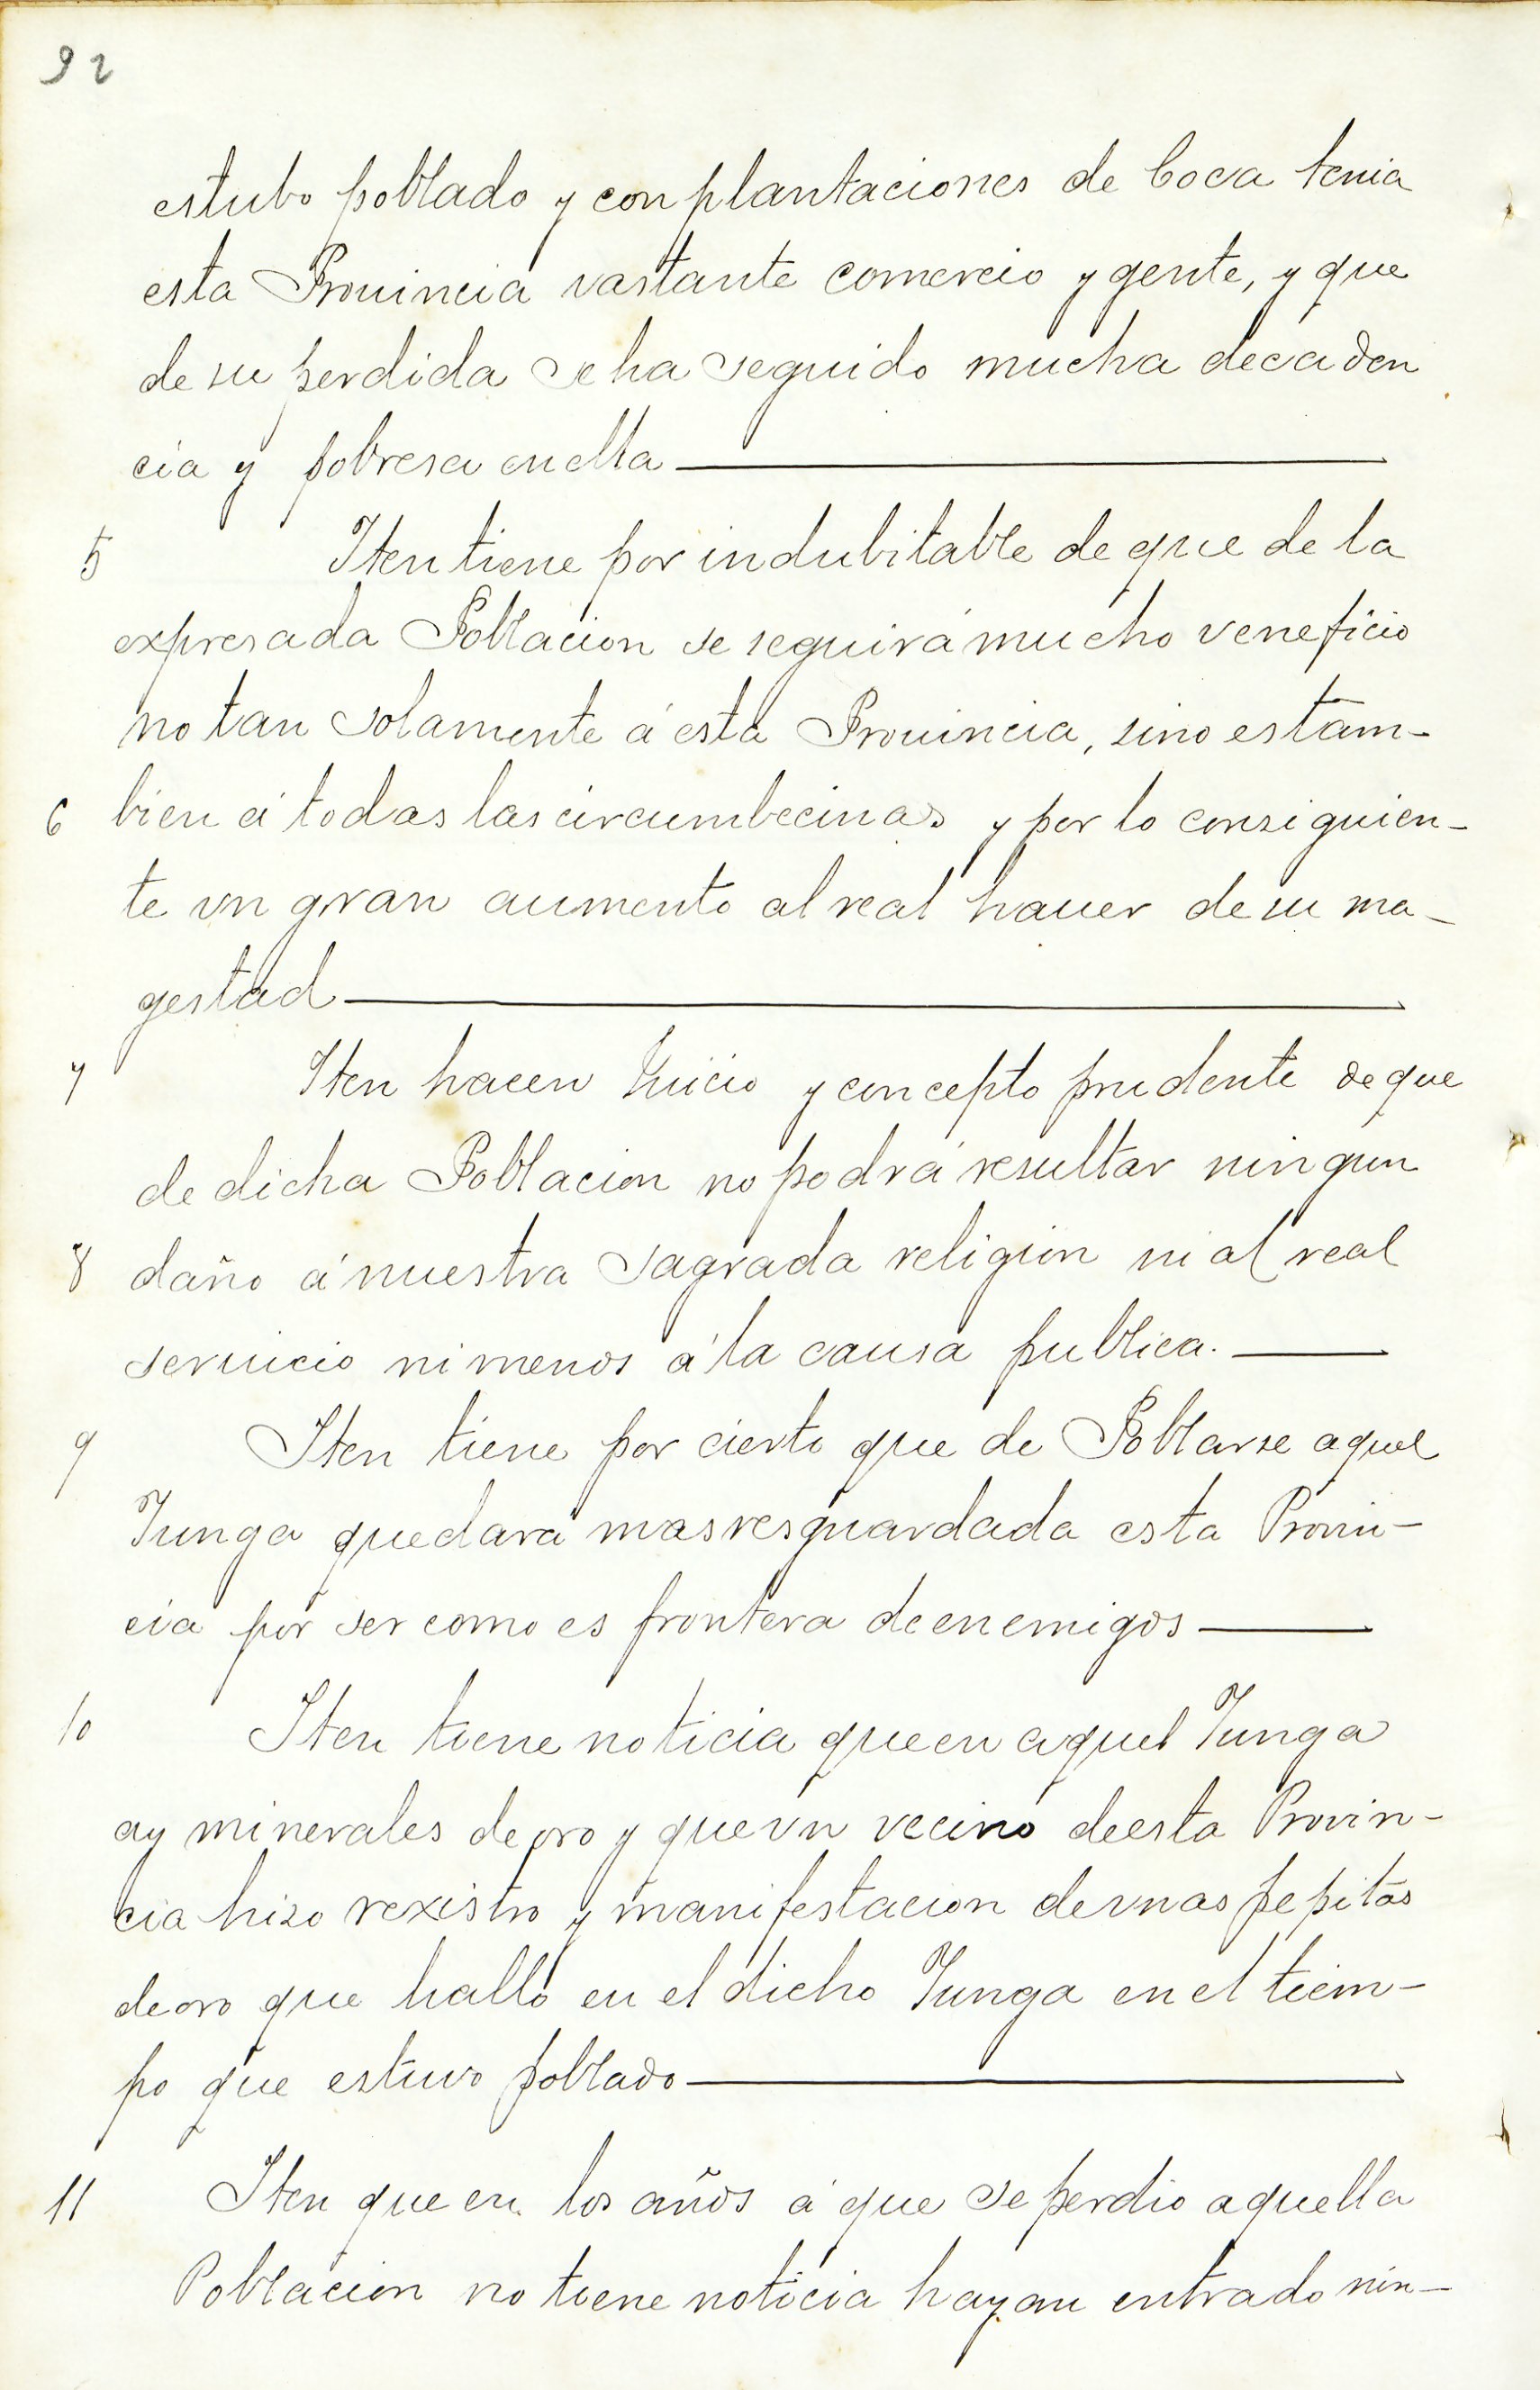 92
estubo poblado y con plantaciones de Coca tenia
esta Prouincia vastante comercio y gente, y que
de su perdida se ha seguido mucha decaden
cia y pobresa en ella
5 Iten tiene por indubitable de que de la
expresada Poblacion se seguirá mucho veneficio
no tan solamente á esta Prouincia, sino es tam-
6 bien á todas las circumbecinas y por lo consiguien-
te vn gran aumento al real hauer de su ma-
gestad
7 Iten hacen Juicio y concepto prudente de que
de dicha Poblacion no podrá resultar ningun
8 daño á nuestra sagrada religion ni al real
seruicio ni menos á la causa publica.
9 Iten tiene por cierto que de Poblarse aquel
Yunga quedará mas resguardada esta Prouin-
cia por ser como es frontera de enemigos
10 Iten tiene noticia que en aquel Yunga
ay minerales de oro y que vn vecino de esta Provin-
cia hizo rexistro y manifestacion de vnas pepitas
de oro que halló en el dicho Yunga en el tiem-
po que estuvo poblado
11 Iten que en los años á que se perdio aquella
Poblacion no tiene noticia hayan entrado nin-